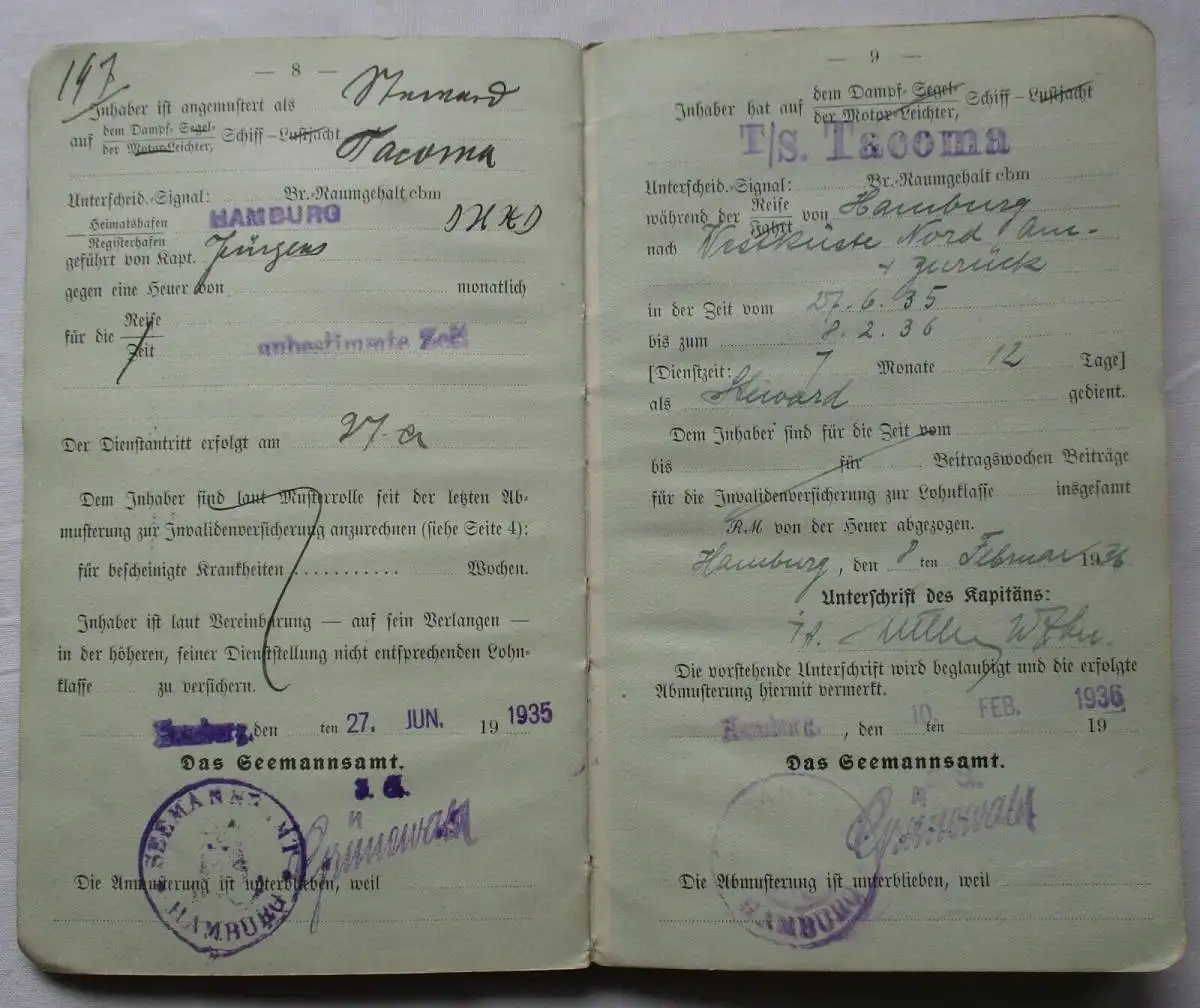 197
— 8 —
Inhaber ist angemustert als Steward
auf dem Dampf- Segel- Schiff – Lustjacht Tacoma
der Motor-Leichter,
Unterscheid.-Signal: Br.-Raumgehalt cbm
Heimatshafen HAMBURG DHKD
Registerhafen
geführt von Kapt. Jürgens
gegen eine Heuer von monatlich
für die Reise
Zeit unbestimmte Zeit
Der Dienstantritt erfolgt am 27.
Dem Inhaber sind laut Musterrolle seit der letzten Ab-
musterung zur Invalidenversicherung anzurechnen (siehe Seite 4):
für bescheinigte Krankheiten .......... Wochen.
Inhaber ist laut Vereinbarung — auf sein Verlangen —
in der höheren, seiner Dienststellung nicht entsprechenden Lohn-
klasse zu versichern.
Hamburg, den ten 27. JUN. 19 1935
Das Seemannsamt.
J. A.
Grünewald
SEEMANNSAMT HAMBURG
Die Anmusterung ist unterblieben, weil
— 9 —
Inhaber hat auf dem Dampf- Segel- Schiff – Lustjacht
der Motor-Leichter,
T/S. Tacoma
Unterscheid.-Signal: Br.-Raumgehalt cbm
während der Reise von Hamburg
Fahrt
nach Westküste Nord Am-
+ zurück
in der Zeit vom 27.6.35
bis zum 8.2.36
[Dienstzeit: 7 Monate 12 Tage]
als Steward gedient.
Dem Inhaber sind für die Zeit vom
bis für Beitragswochen Beiträge
für die Invalidenversicherung zur Lohnklasse insgesamt
RM von der Heuer abgezogen.
Hamburg, den 8 ten Februar 1936
Unterschrift des Kapitäns:
i.A.
Die vorstehende Unterschrift wird beglaubigt und die erfolgte
Abmusterung hiermit vermerkt.
Hamburg, den 10. ten FEB. 19 1936
Das Seemannsamt.
Grünewald
HAMBURG
Die Abmusterung ist unterblieben, weil